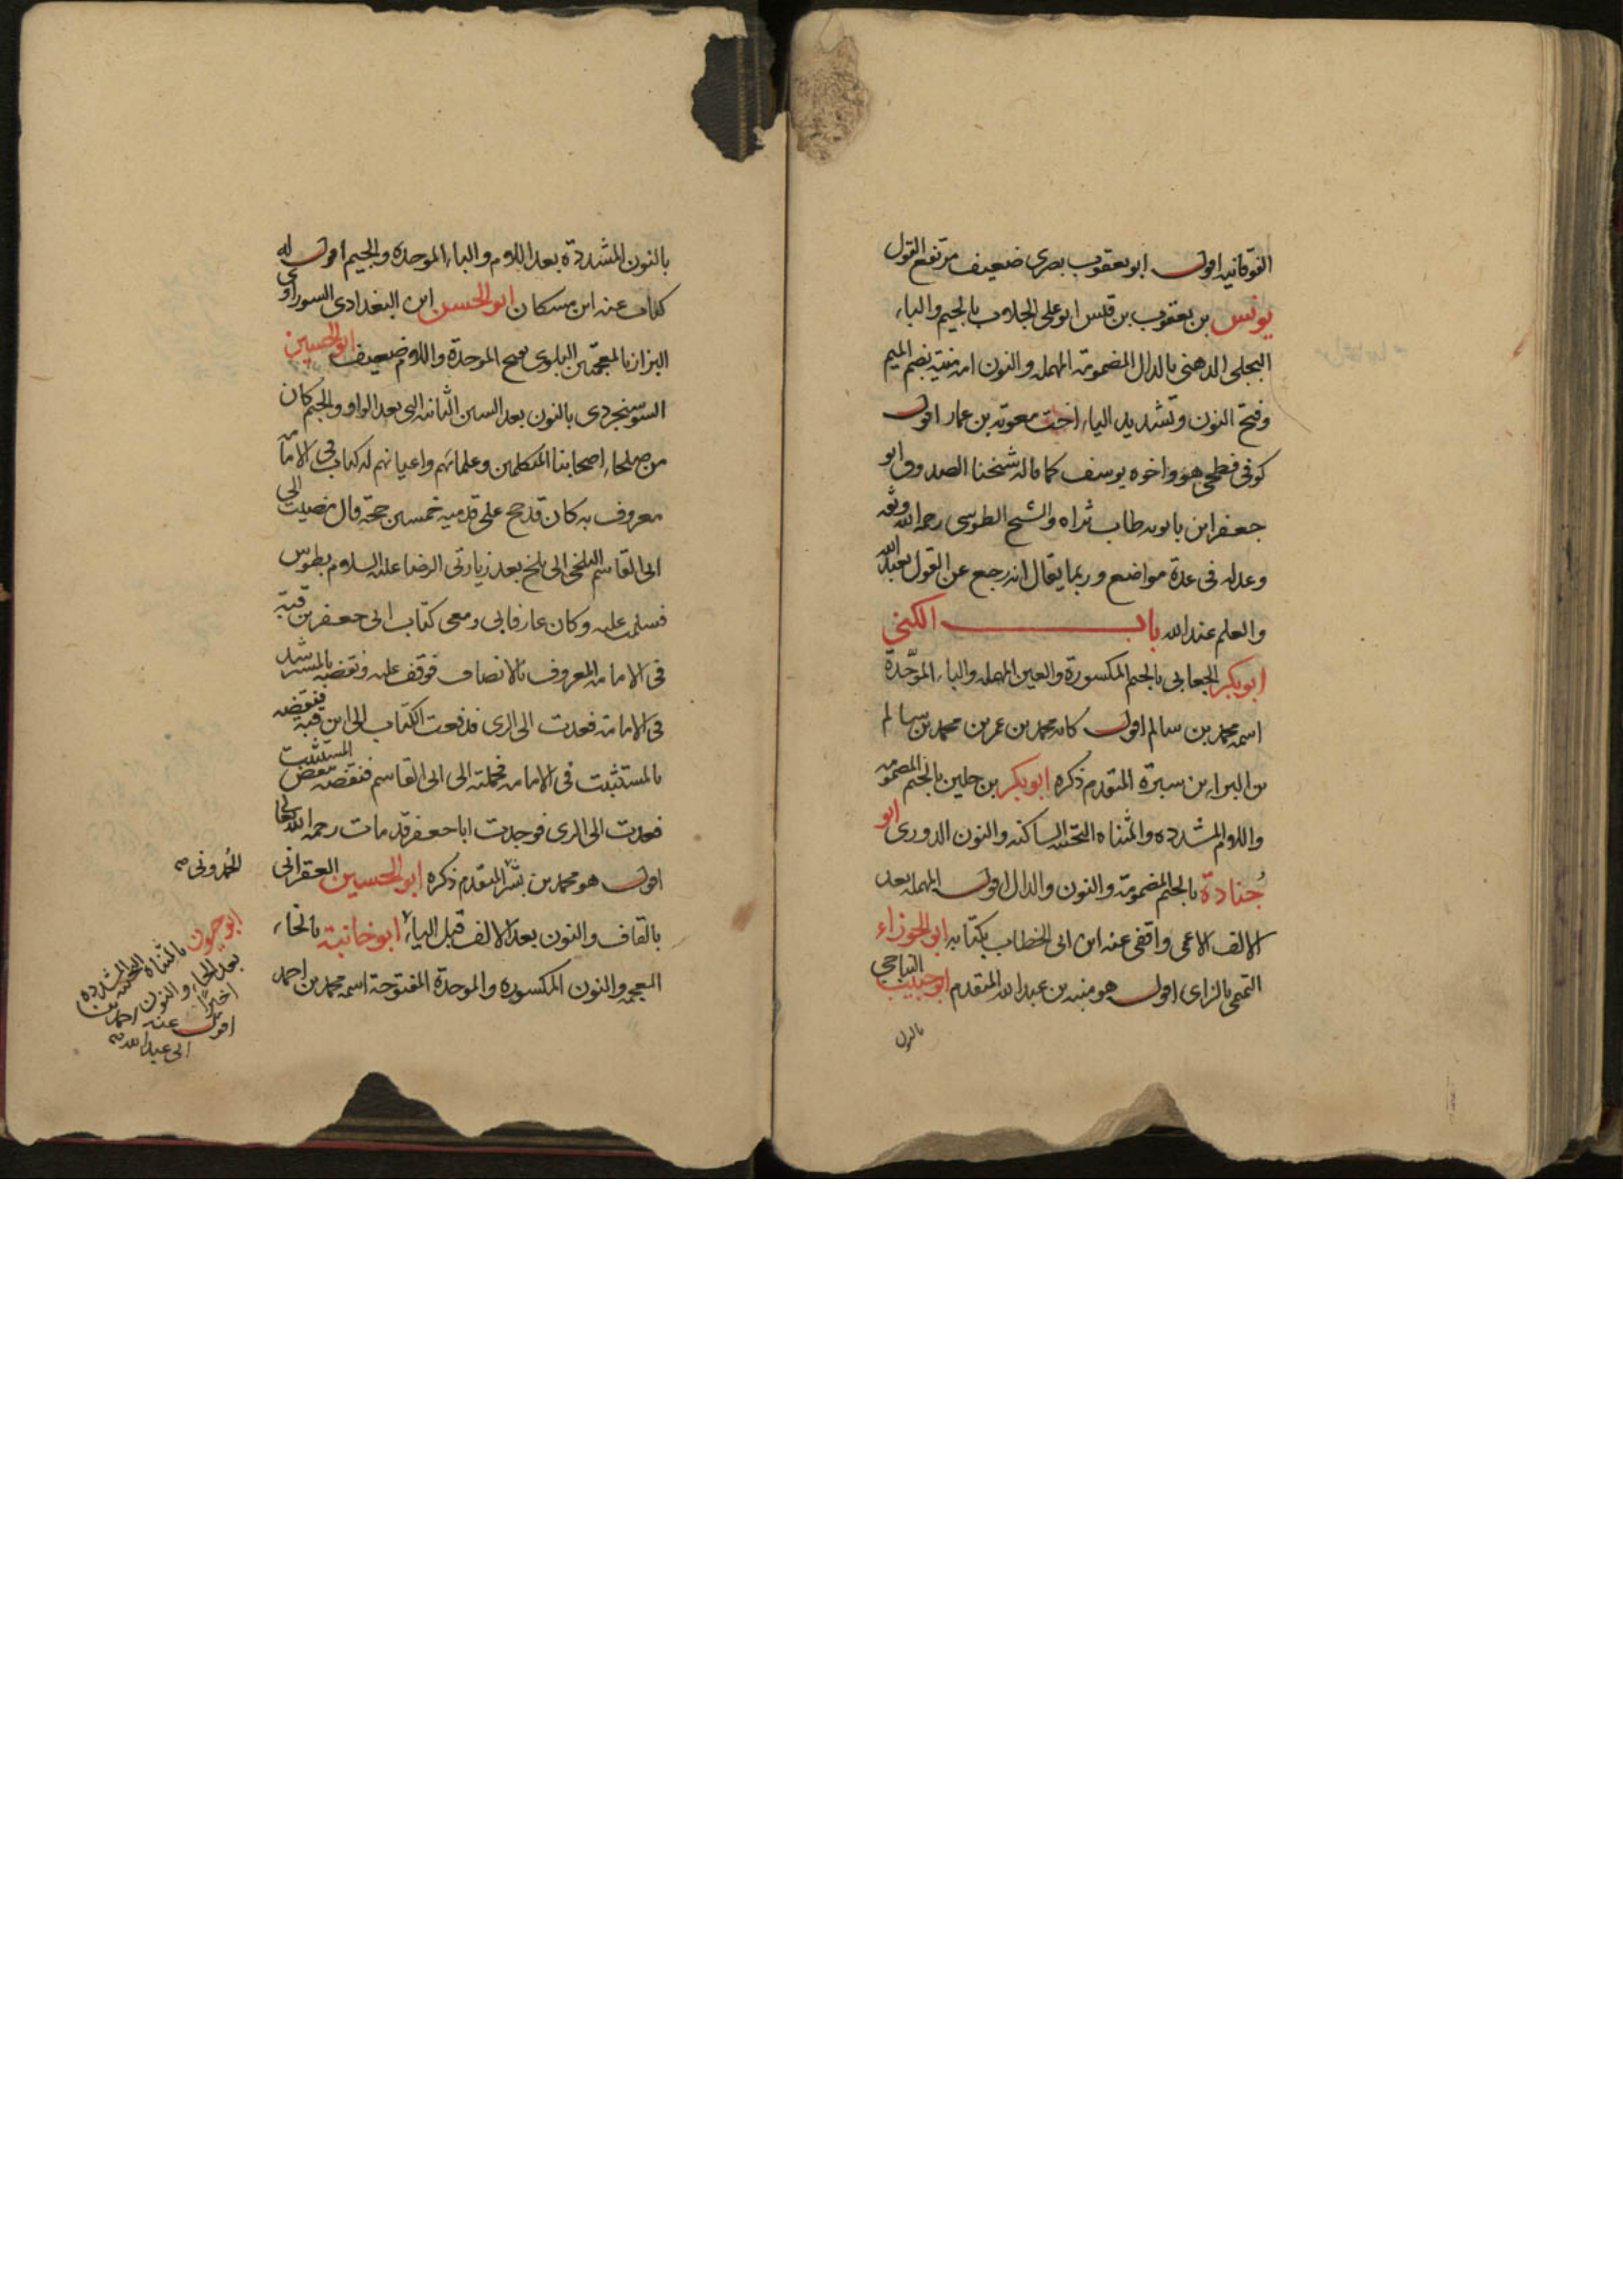 الفوقانيه اقول ابو يعقوب بصرى ضعيف مرتفع القول
يونس بن يعقوب بن قيس ابو على الجلاب بالجيم والباء
البجلى الدهنى بالدال المضمومة المهمله والنون امه منية بضم الميم
وفتح النون وتشديد الياء اخت معوية بن عمار اقول
كوفى فطحى هو واخوه يوسف كما قاله شيخنا الصدوق ابو
جعفر ابن بابويه طاب ثراه والشيخ الطوسى رحمه الله وثقه
وعدله فى عدة مواضع وربما يقال انه رجع عن القول بعبد الله
والعلم عند الله باب الكنى
ابو بكر الجعابى بالجيم المكسورة والعين المهمله والباء الموحّدة
اسمه محمد بن سالم اقول كانه محمد بن عمر بن محمد بن سالم
بن البراء بن سبرة المتقدم ذكره ابو بكر بن جلين بالجيم المضمومه
واللام المشدده والمثناه التحتيه الساكنه والنون الدورى ابو
جُنادة بالجيم المضمومة والنون والدال اقول المهمله بعد
الالف الاعمى واقفى عنه ابن ابى الخطاب بكتابه ابو الجوزاء
التميمى بالزاى اقول هو منبه بن عبد الله المتقدم ابو حبيب النباجى
بالنون
بالنون المشددة بعد اللام والباء الموحده والجيم اقول له
كتاب عنه ابن مسكان ابو الحسن ابن البغدادى السوراوى
البزاز بالمعجمتين البلوى بفتح الموحدة واللام ضعيف ابو الحسين
السوسنجردى بالنون بعد السين الثانيه التى بعد الواو والجيم كان
من صلحاء اصحابنا المتكلمين وعلمائهم واعيانهم له كتاب فى الامامه
معروف به كان قد حج على قدميه خمسين حجة قال مضيت الى
ابى القاسم البلخى الى بلخ بعد زيارتى الرضا عليه السلام بطوس
فسلمت عليه وكان عارفا بى ومعى كتاب ابى جعفر بن قبة
فى الامامه المعروف بالانصاف فوقف عليه ونقضه بالمسترشد
فى الامامة فعدت الى الرى فدفعت الكتاب الى ابن قبه فنقضه
بالمستثبت فى الامامه فحملته الى ابى القاسم فنقضه بنقض المستثبت
فعدت الى الرى فوجدت ابا جعفر قد مات رحمه الله تعالى
اقول هو محمد بن بشر المتقدم ذكره ابو الحسين العقرانى
بالقاف والنون بعد الالف قبل الياء ابو خانبة بالخاء
المعجمه والنون المكسوره والموحدة المفتوحة اسمه محمد بن احمد
الحمدونى
ابو حيون بالمثناة التحتيه المشدده
بعد الحاء والنون
اخيرًا
اقول عنه احمد بن
ابى عبد الله